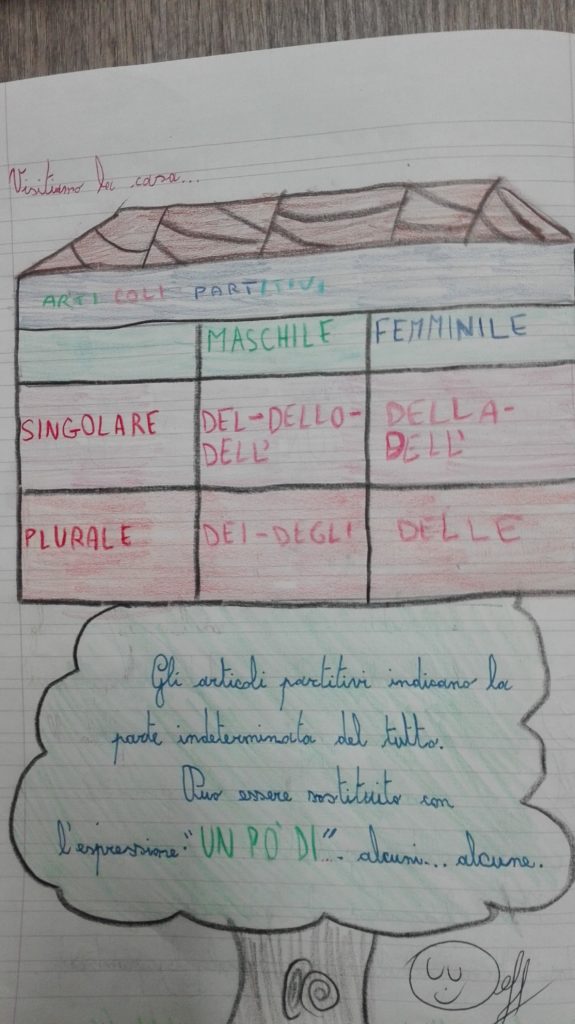 Visitiamo la casa...
ARTICOLI PARTITIVI
MASCHILE FEMMINILE
SINGOLARE DEL-DELLO-DELL' DELLA-DELL'
PLURALE DEI-DEGLI DELLE
Gli articoli partitivi indicano la
parte indeterminata del tutto.
Può essere sostituito con
l'espressione "UN PO' DI"... alcuni... alcune.